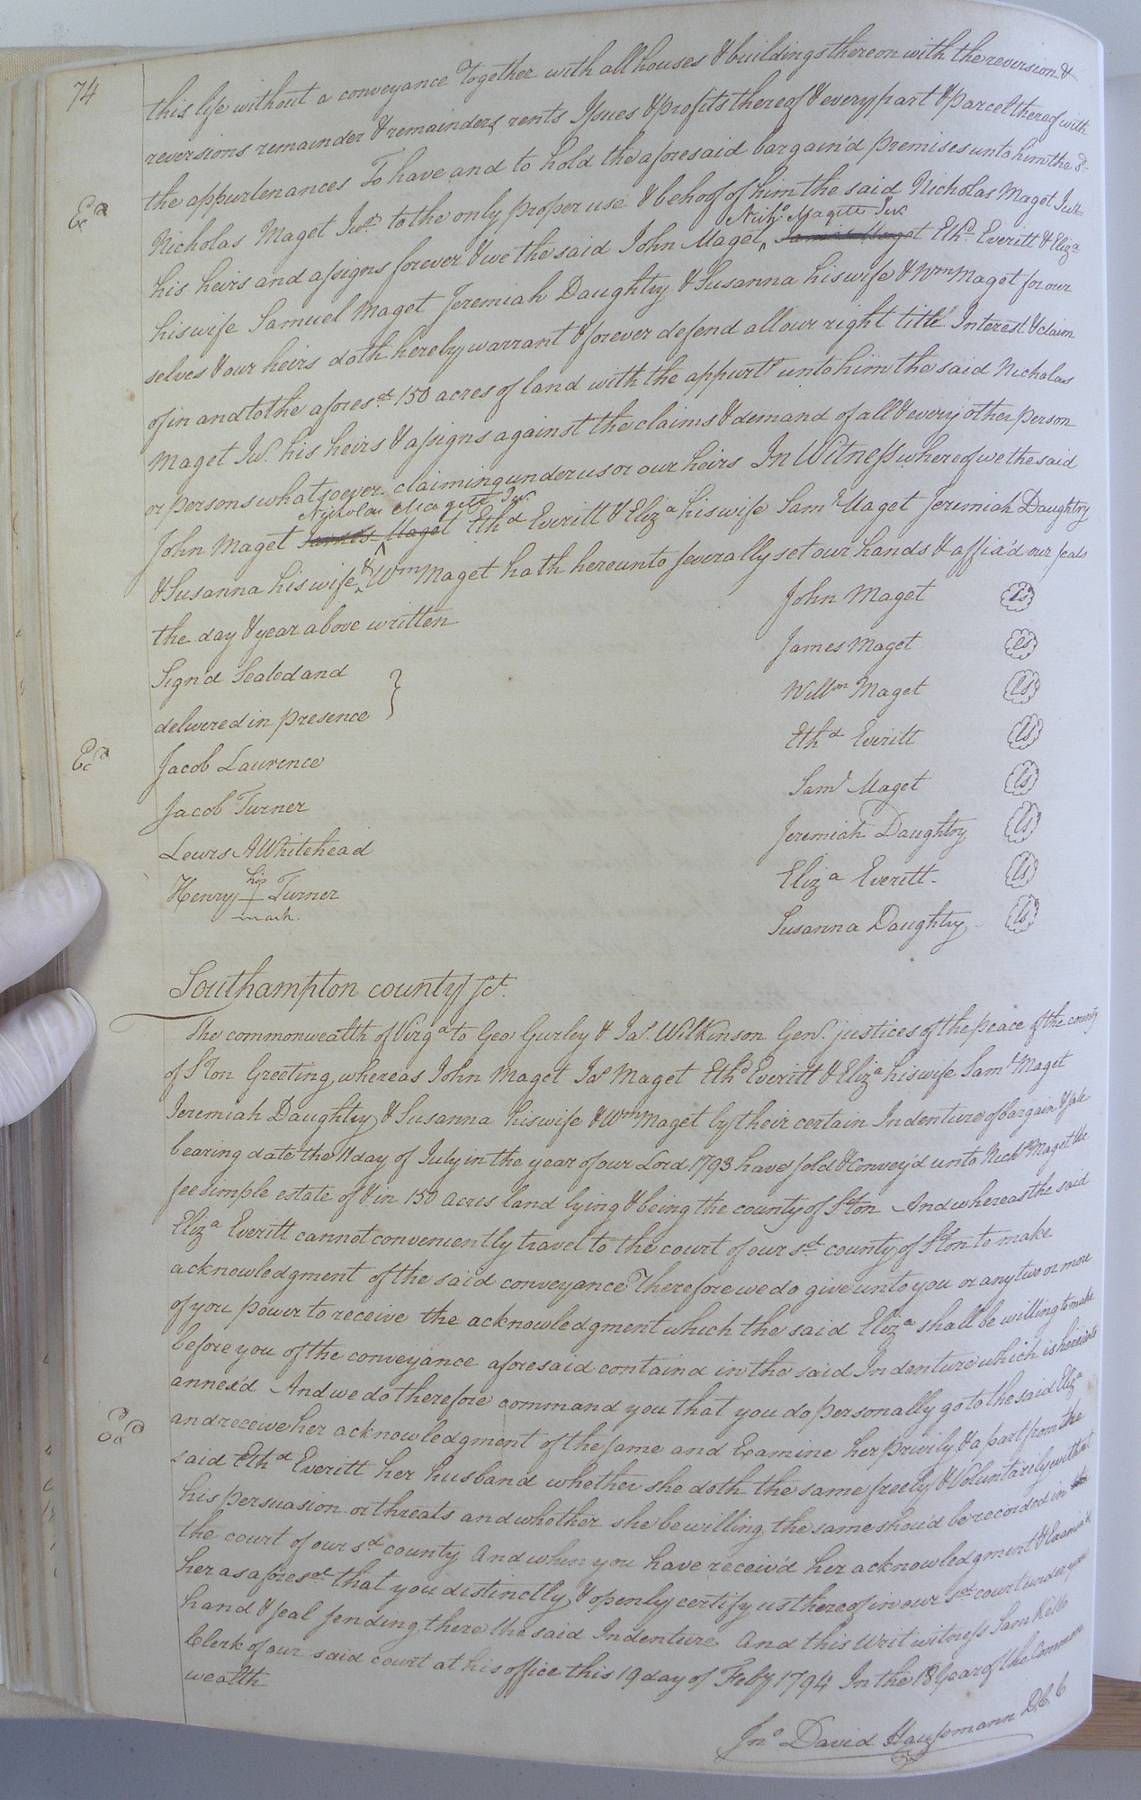 74
this life without a conveyance Together with all houses & buildings thereon with the reversion &
reversions remainder & remainders rents Issues & profits thereof & every part & parcel thereof with
the appurtenances To have and to hold the aforesaid bargain'd premises unto him the sd
Exd
Nicholas Maget Jur to the only proper use & behoof of him the said Nicholas Maget Jur
Nichs Magett Jur
his heirs and assigns forever & we the said John Maget ^ Samuel Maget Ethd Everitt & Eliza
his wife Samuel Maget Jeremiah Daughtry & Susanna his wife & Wm Maget for our
selves & our heirs doth hereby warrant & forever defend all our right title Interest & claim
of in and to the aforesd 150 acres of land with the appurts unto him the said Nicholas
Maget Jur his heirs & assigns against the claims & demand of all & every other person
or persons whatsoever claiming under us or our heirs In Witness whereof we the said
Nicholas Magett Jur
John Maget James Maget ^ Ethd Everitt & Eliza his wife Saml Maget Jeremiah Daughtry
& Susanna his wife ^& Wm Maget hath hereunto severally set our hands & affix'd our seals
the day & year above written
John Maget ls
James Maget ls
Sign'd Sealed and
Willm Maget ls
delivered in presence }
Ethd Everitt ls
Exd
Jacob Laurence
Saml Maget ls
Jacob Turner
Jeremiah Daughtry ls
Lewis A Whitehead
Eliza Everitt ls
his
Henry + Turner
mark
Susanna Daughtry ls
Southampton county Sct.
The commonwealth of Virga to Geo Gurley & Jas Wilkinson Gent justices of the peace of the county
of S'ton Greeting, whereas John Maget Jas Maget Ethd Everitt & Eliza his wife Saml Maget
Jeremiah Daughtry & Susanna his wife & Wm Maget by their certain Indenture of bargain & sale
bearing date the 11 day of July in the year of our Lord 1793 have sold & convey'd unto Nichs Maget the
fee simple estate of & in 150 acres land lying & being the county of S'ton And whereas the said
Eliza Everitt cannot conveniently travel to the court of our sd county of S'ton to make
acknowledgment of the said conveyance Therefore we do give unto you or any two or more
of you power to receive the acknowledgment which the said Eliza shall be willing to make
before you of the conveyance aforesaid containd in the said Indenture which is hereunto
annex'd And we do therefore command you that you do personally go to the said Eliza
Exd
and receive her acknowledgment of the same and Examine her privily & apart from the
said Ethd Everitt her husband whether she doth the same freely & Voluntarily without
his persuasion or threats and whether she be willing the same shou'd be recorded in
the court of our sd county And when you have receiv'd her acknowledgment & examin'd
her as aforesd that you distinctly & openly certify us thereof in our sd court under your
hand & seal sending there the said Indenture And this Writ witness Saml Kello
Clerk of our said court at his office this 19 day of Feby 1794 In the 18 Year of the Common
wealth
Jno David Haussmann D.C.C